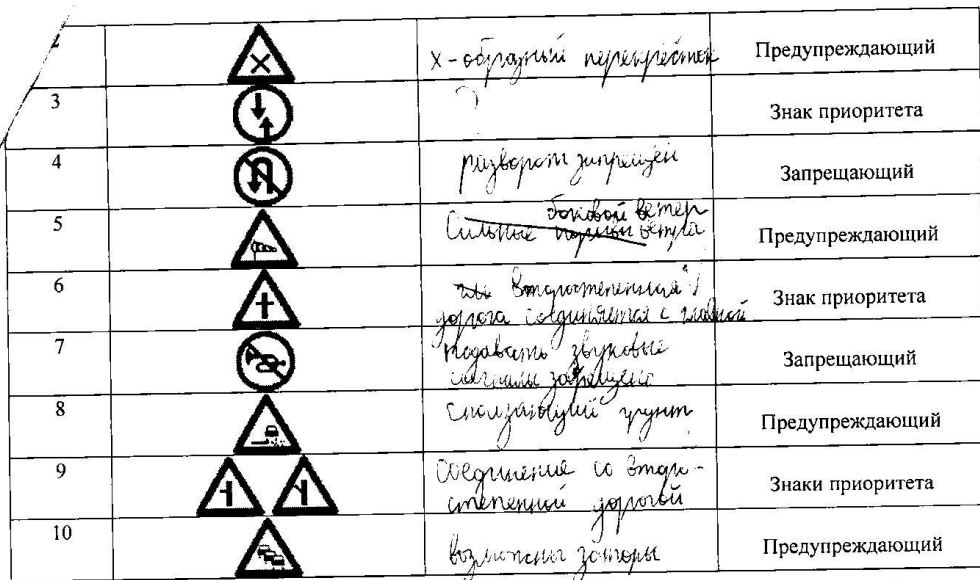 2
х-образный перекрёсток
Предупреждающий
3
?
Знак приоритета
4
разворот запрещён
Запрещающий
5
боковой ветер
Сильные порывы ветра
Предупреждающий
6
или второстепенная
дорога соединяется с главной
Знак приоритета
7
подавать звуковые
сигналы запрещено
Запрещающий
8
сползающий грунт
Предупреждающий
9
соединение со втор-
степенной дорогой
Знаки приоритета
10
возможны заторы
Предупреждающий